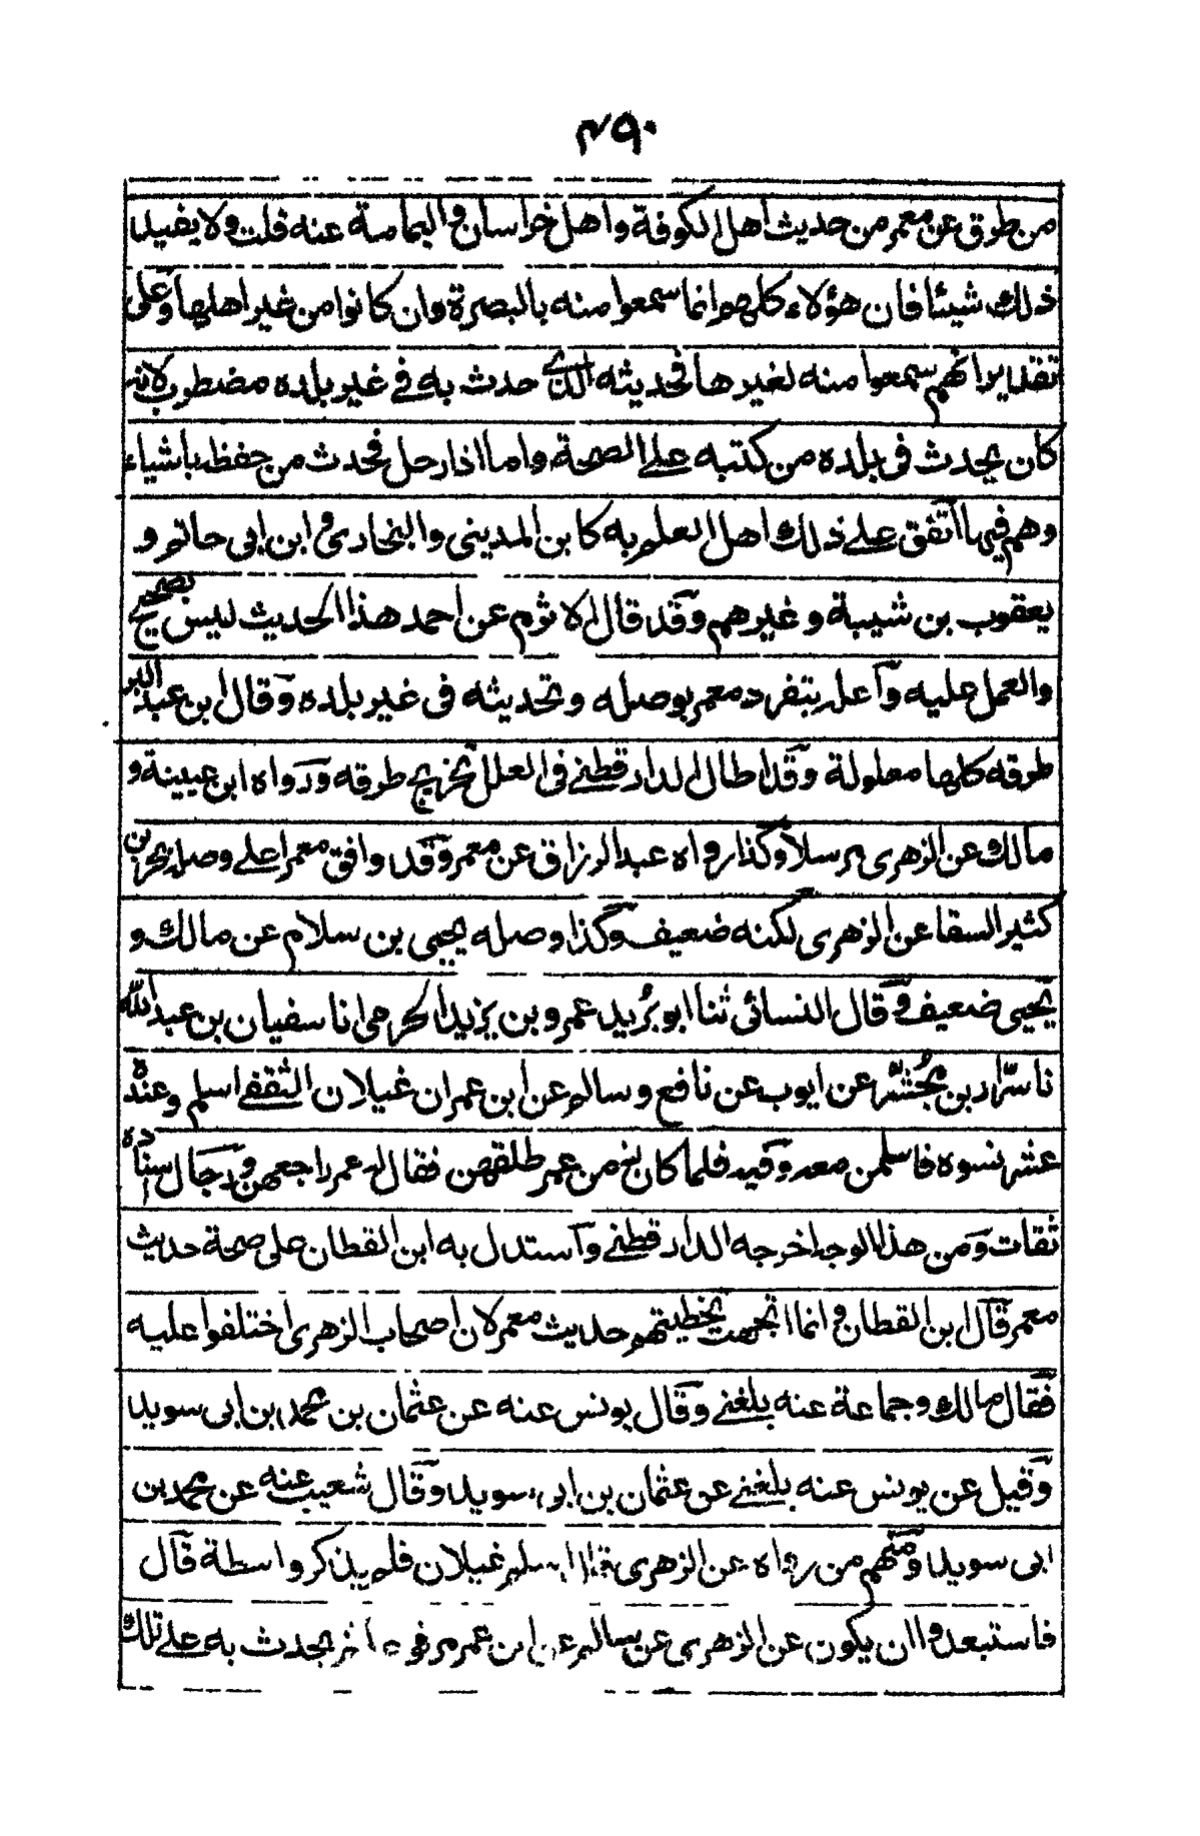 ٢٩٠
من طرق عن معمر من حديث اهل الكوفة واهل خراسان واليمامة عنه قلت ولا يفيد
ذلك شيئا فان هؤلاء كلهم انما سمعوا منه بالبصرة وان كانوا من غير اهلها وعلى
تقدير انهم سمعوا منه لغيرها فحديثه الذي حدث به في غير بلده مضطرب لانه
كان يحدث في بلده من كتبه على الصحة واما اذا رحل فحدث من حفظه باشياء
وهم فيها اتفق على ذلك اهل العلم به كابن المديني والبخاري وابن ابي حاتم و
يعقوب بن شيبة وغيرهم وقد قال الاثرم عن احمد هذا الحديث ليس بصحيح
والعمل عليه وآعله بتفرد معمر بوصله وتحديثه في غير بلده وقال ابن عبد البر
طرقه كلها معلولة وقد اطال الدارقطني في العلل تخريج طرقه ورواه ابن عيينة و
مالك عن الزهري مرسلا وكذا رواه عبد الرزاق عن معمر وقد وافق معمرا على وصله بحر بن
كثير السقا عن الزهري لكنه ضعيف وكذا وصله يحيى بن سلام عن مالك و
يحيى ضعيف وقال النسائي ثنا ابو بُريد عمرو بن يزيد الجرمي انا سفيان بن عبد الله
نا سرّار بن مُجشّر عن ايوب عن نافع وسالم عن ابن عمر ان غيلان الثقفي اسلم وعنده
عشر نسوة فاسلمن معه وفيه فلما كان زمن عمر طلقهن فقال له عمر راجعهن ورجال اسناده
ثقات ومن هذا الوجه اخرجه الدارقطني وآستدل به ابن القطان على صحة حديث
معمر قال ابن القطان وانما اتجهت تخطيتهم حديث معمر لان اصحاب الزهري اختلفوا عليه
فقال مالك وجماعة عنه بلغني وقال يونس عنه عن عثمان بن محمد بن ابي سويد
وقيل عن يونس عنه بلغني عن عثمان بن ابي سويد وقال شعيب عنه عن محمد بن
ابي سويد ومنهم من رواه عن الزهري قال اسلم غيلان فلم يذكر واسطة قال
فاستبعدوا ان يكون عن الزهري عن سالم عن ابن عمر مرفوعا ثم يحدث به على تلك